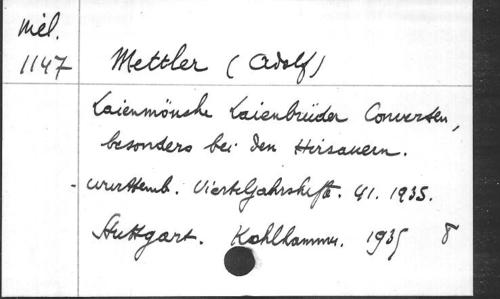 Mél.
1147
Mettler (Adolf)
Laienmönche Laienbrüder Conversen,
besonders bei den Hirsauern.
- Württemb. Vierteljahrshefte. 41. 1935.
Stuttgart. Kohlhammer. 1935 8